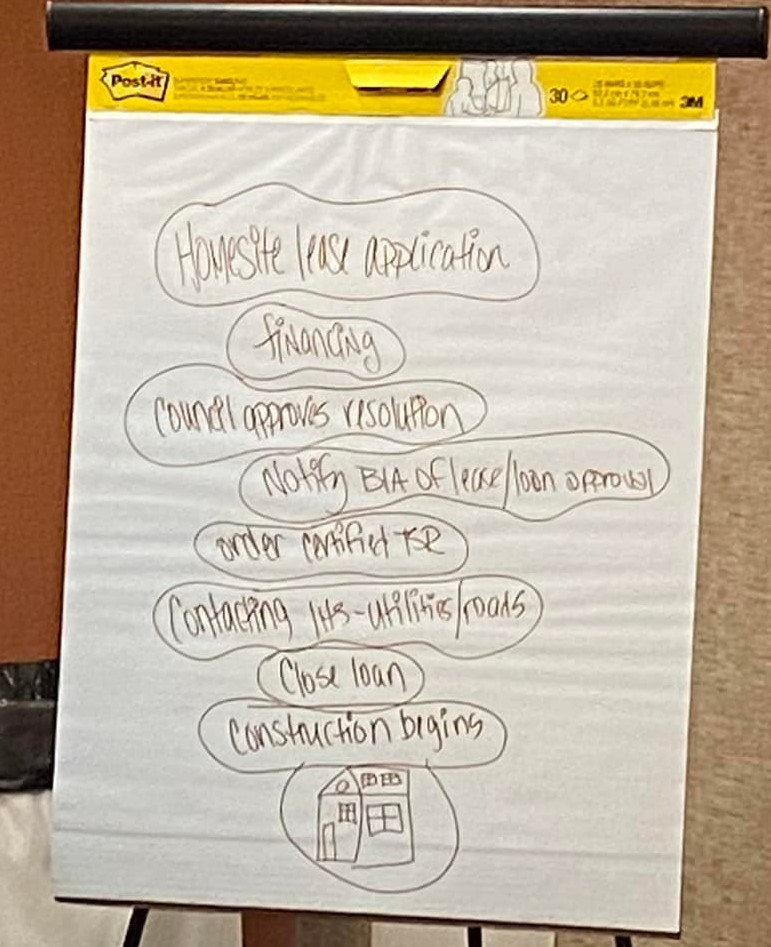 Post-it
30
3M
Homesite lease application
financing
Council approves resolution
Notify BIA of lease/loan approval
order certified TSR
Contacting IHS-utilities/roads
Close loan
Construction begins